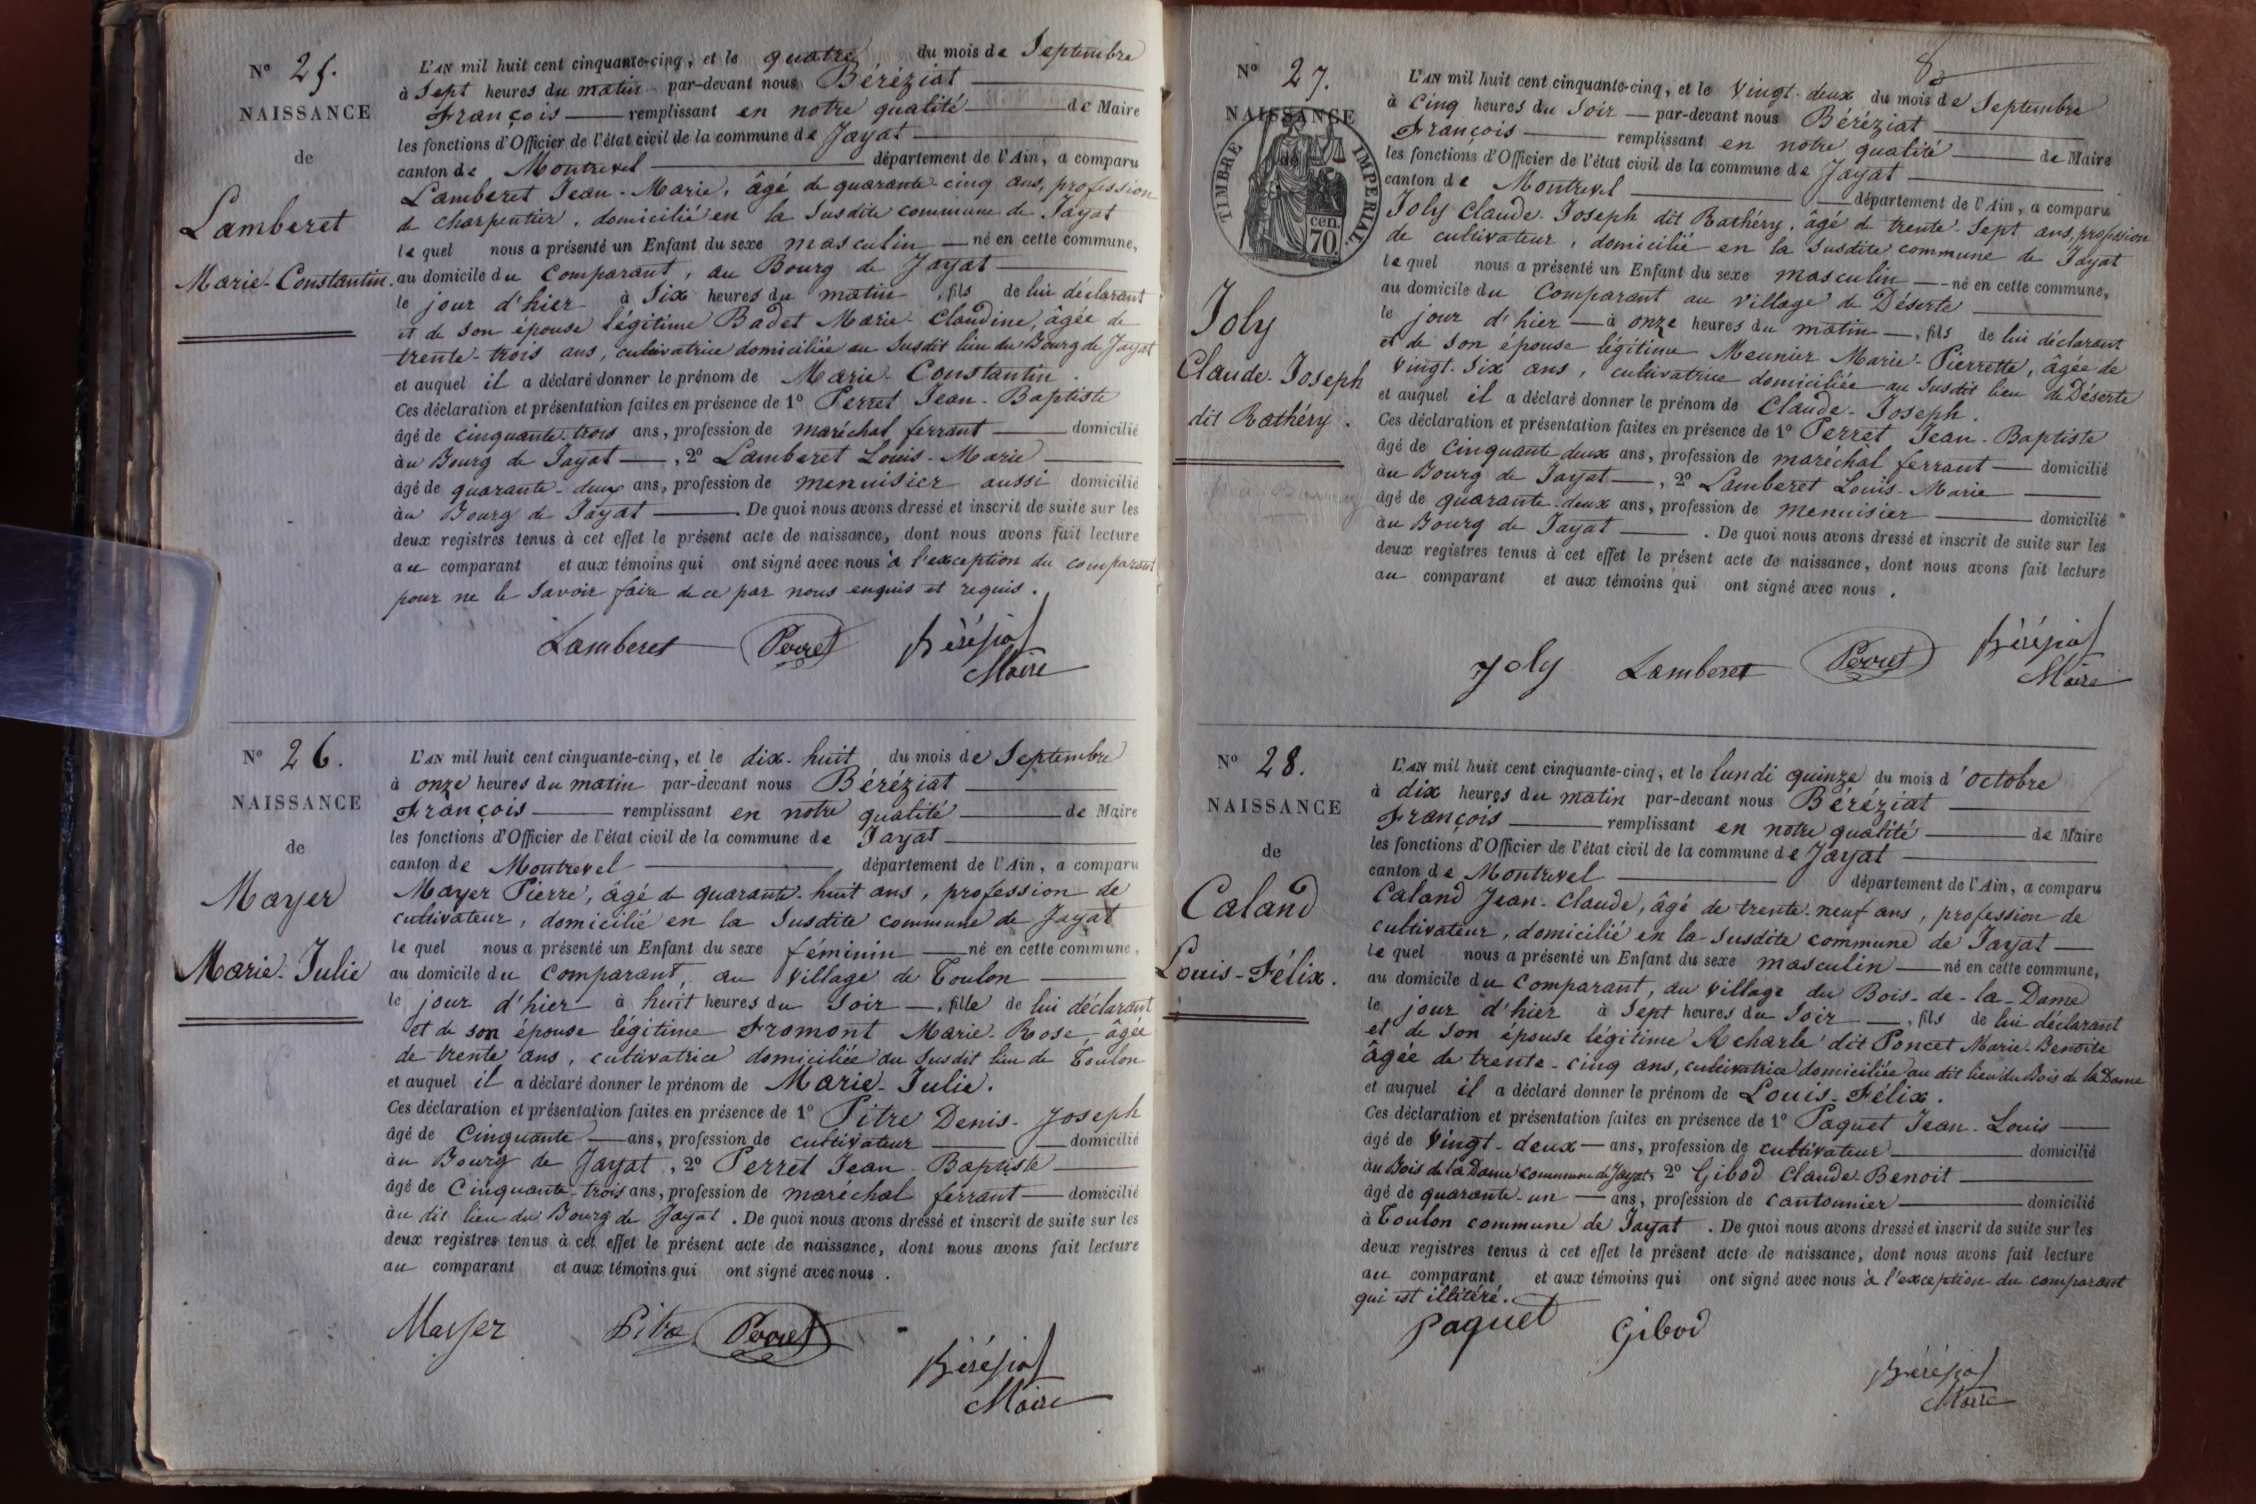 Nº 25.
NAISSANCE
de
Lamberet
Marie-Constantin.
L'AN mil huit cent cinquante-cinq, et le quatre du mois de Septembre
à Sept heures du matin par-devant nous Béréziat
François remplissant en notre qualité de Maire
les fonctions d'Officier de l'état civil de la commune de Jayat
canton de Montrevel département de l'Ain, a comparu
Lamberet Jean-Marie, âgé de quarante-cinq ans, profession
de charpentier, domicilié en la susdite commune de Jayat
le quel nous a présenté un Enfant du sexe masculin né en cette commune,
au domicile du comparant, au Bourg de Jayat
le jour d'hier à Six heures du matin, fils de lui déclarant
et de son épouse légitime Badet Marie-Claudine, âgée de
trente-trois ans, cultivatrice domiciliée au susdit lieu du Bourg de Jayat
et auquel il a déclaré donner le prénom de Marie-Constantin.
Ces déclaration et présentation faites en présence de 1º Perret Jean-Baptiste
âgé de cinquante-trois ans, profession de maréchal ferrant domicilié
au Bourg de Jayat, 2º Lamberet Louis-Marie
âgé de quarante-deux ans, profession de menuisier aussi domicilié
au Bourg de Jayat. De quoi nous avons dressé et inscrit de suite sur les
deux registres tenus à cet effet le présent acte de naissance, dont nous avons fait lecture
au comparant et aux témoins qui ont signé avec nous à l'exception du comparant
pour ne le savoir faire de ce par nous enquis et requis.
Lamberet Perret Béréziat
Maire
Nº 26.
NAISSANCE
de
Mayer
Marie-Julie
L'AN mil huit cent cinquante-cinq, et le dix-huit du mois de Septembre
à onze heures du matin par-devant nous Béréziat
François remplissant en notre qualité de Maire
les fonctions d'Officier de l'état civil de la commune de Jayat
canton de Montrevel département de l'Ain, a comparu
Mayer Pierre, âgé de quarante-huit ans, profession de
cultivateur, domicilié en la susdite commune de Jayat
le quel nous a présenté un Enfant du sexe féminin né en cette commune,
au domicile du comparant, au village de Toulon
le jour d'hier à huit heures du soir, fille de lui déclarant
et de son épouse légitime Fromont Marie-Rose, âgée
de trente ans, cultivatrice domiciliée au susdit lieu de Toulon
et auquel il a déclaré donner le prénom de Marie-Julie.
Ces déclaration et présentation faites en présence de 1º Pitre Denis-Joseph
âgé de cinquante ans, profession de cultivateur domicilié
au Bourg de Jayat, 2º Perret Jean-Baptiste
âgé de cinquante-trois ans, profession de maréchal ferrant domicilié
au dit lieu du Bourg de Jayat. De quoi nous avons dressé et inscrit de suite sur les
deux registres tenus à cet effet le présent acte de naissance, dont nous avons fait lecture
au comparant et aux témoins qui ont signé avec nous.
Mayer Pitre Perret
Béréziat
Maire
8
Nº 27.
NAISSANCE
de
TIMBRE IMPERIAL.
cen.
70
Joly
Claude-Joseph
dit Rathéry.
L'AN mil huit cent cinquante-cinq, et le vingt-deux du mois de Septembre
à cinq heures du soir par-devant nous Béréziat
François remplissant en notre qualité de Maire
les fonctions d'Officier de l'état civil de la commune de Jayat
canton de Montrevel département de l'Ain, a comparu
Joly Claude-Joseph dit Rathéry, âgé de trente-sept ans, profession
de cultivateur, domicilié en la susdite commune de Jayat
le quel nous a présenté un Enfant du sexe masculin né en cette commune,
au domicile du comparant au village de Déserte
le jour d'hier à onze heures du matin, fils de lui déclarant
et de son épouse légitime Meunier Marie-Pierrette, âgée de
vingt-six ans, cultivatrice domiciliée au susdit lieu de Déserte
et auquel il a déclaré donner le prénom de Claude-Joseph.
Ces déclaration et présentation faites en présence de 1º Perret Jean-Baptiste
âgé de cinquante deux ans, profession de maréchal ferrant domicilié
au Bourg de Jayat, 2º Lamberet Louis-Marie
âgé de quarante-deux ans, profession de menuisier domicilié
au Bourg de Jayat. De quoi nous avons dressé et inscrit de suite sur les
deux registres tenus à cet effet le présent acte de naissance, dont nous avons fait lecture
au comparant et aux témoins qui ont signé avec nous.
Joly Lamberet Perret Béréziat
Maire
Nº 28.
NAISSANCE
de
Caland
Louis-Félix.
L'AN mil huit cent cinquante-cinq, et le lundi quinze du mois d'octobre
à dix heures du matin par-devant nous Béréziat
François remplissant en notre qualité de Maire
les fonctions d'Officier de l'état civil de la commune de Jayat
canton de Montrevel département de l'Ain, a comparu
Caland Jean-Claude, âgé de trente-neuf ans, profession de
cultivateur, domicilié en la susdite commune de Jayat
le quel nous a présenté un Enfant du sexe masculin né en cette commune,
au domicile du comparant, au village du Bois-de-la-Dame
le jour d'hier à Sept heures du Soir, fils de lui déclarant
et de son épouse légitime Acharle dit Poncet Marie-Benoite
âgée de trente-cinq ans, cultivatrice domiciliée au dit lieu du Bois de la Dame
et auquel il a déclaré donner le prénom de Louis-Félix.
Ces déclaration et présentation faites en présence de 1º Paquet Jean-Louis
âgé de vingt-deux ans, profession de cultivateur domicilié
au Bois de la Dame commune de Jayat, 2º Gibod Claude-Benoit
âgé de quarante-un ans, profession de cantonnier domicilié
à Toulon commune de Jayat. De quoi nous avons dressé et inscrit de suite sur les
deux registres tenus à cet effet le présent acte de naissance, dont nous avons fait lecture
au comparant et aux témoins qui ont signé avec nous à l'exception du comparant
qui est illitéré.
Paquet Gibod
Béréziat
Maire